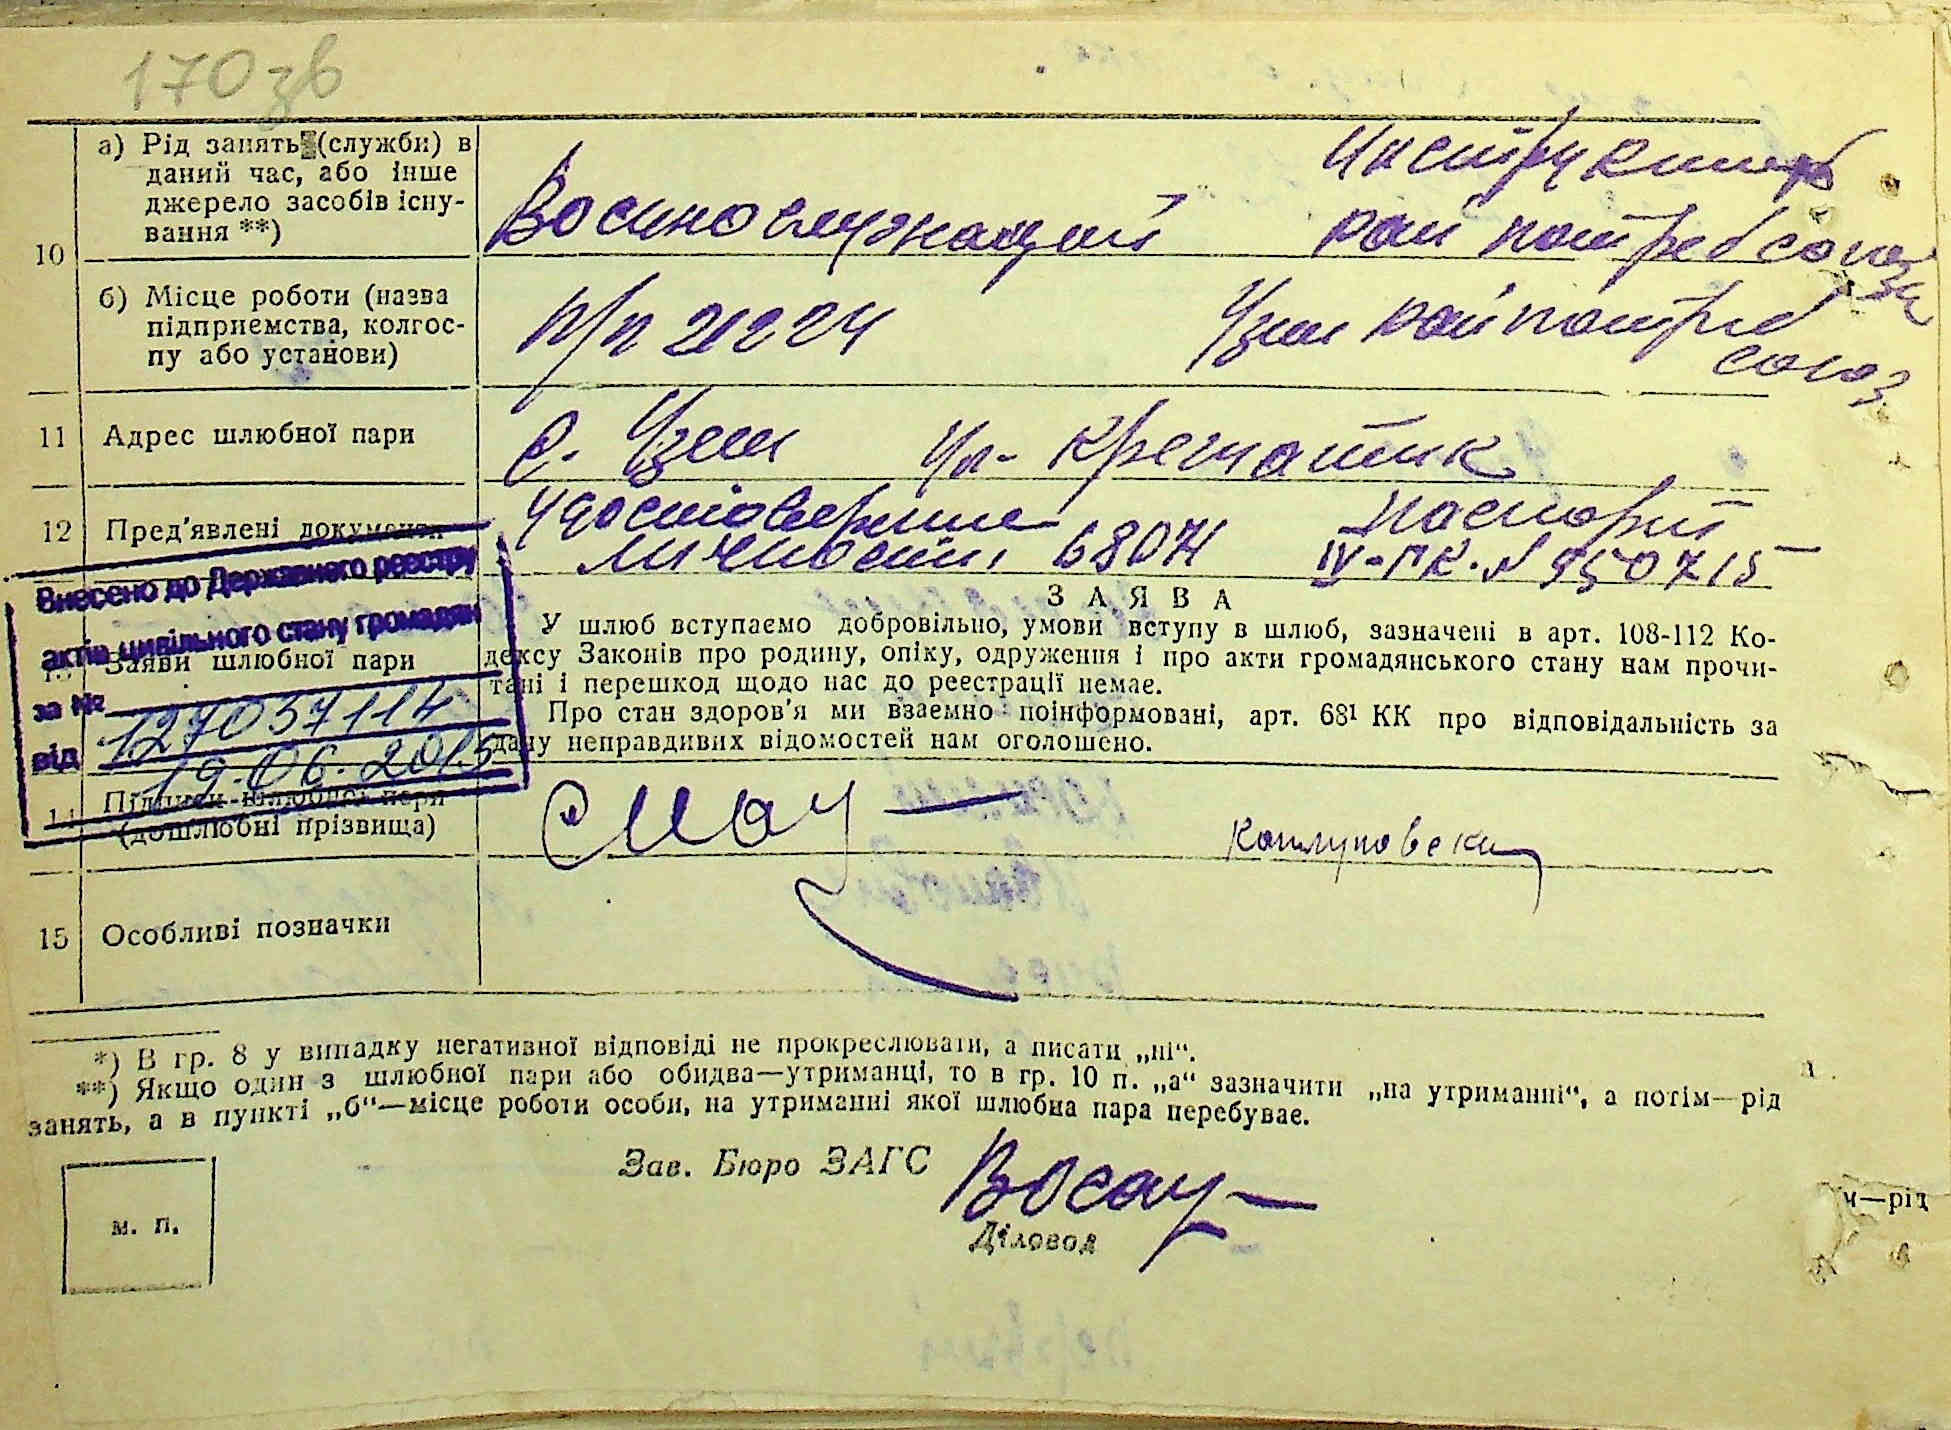 170 зв
10
а) Рід занять (служби) в
даний час, або інше
джерело засобів існу-
вання **)
Военнослужащий
Инструктор
рай потребсоюза
б) Місце роботи (назва
підприємства, колгос-
пу або установи)
п/п 21224
Узин райпотреб
союз
11
Адрес шлюбної пари
с. Узин ул. Крещатик
12
Пред'явлені документи
Удостоверение
личности 68074
Паспорт
IV-ПК. № 950715
Внесено до Державного реєстру
актів цивільного стану громадян
за № 127037114
від 19.06.2015
Заяви шлюбної пари
ЗАЯВА
У шлюб вступаємо добровільно, умови вступу в шлюб, зазначені в арт. 108-112 Ко-
дексу Законів про родину, опіку, одруження і про акти громадянського стану нам прочи-
тані і перешкод щодо нас до реєстрації немає.
Про стан здоров'я ми взаємно поінформовані, арт. 68¹ КК про відповідальність за
дачу неправдивих відомостей нам оголошено.
14
Підписи шлюбної пари
(дошлюбні прізвища)
15
Особливі позначки
*) В гр. 8 у випадку негативної відповіді не прокреслювати, а писати „ні“.
**) Якщо один з шлюбної пари або обидва—утриманці, то в гр. 10 п. „а“ зазначити „на утриманні“, а потім—рід
занять, а в пункті „б“—місце роботи особи, на утриманні якої шлюбна пара перебуває.
Зав. Бюро ЗАГС
Діловод
м. п.
м—рід